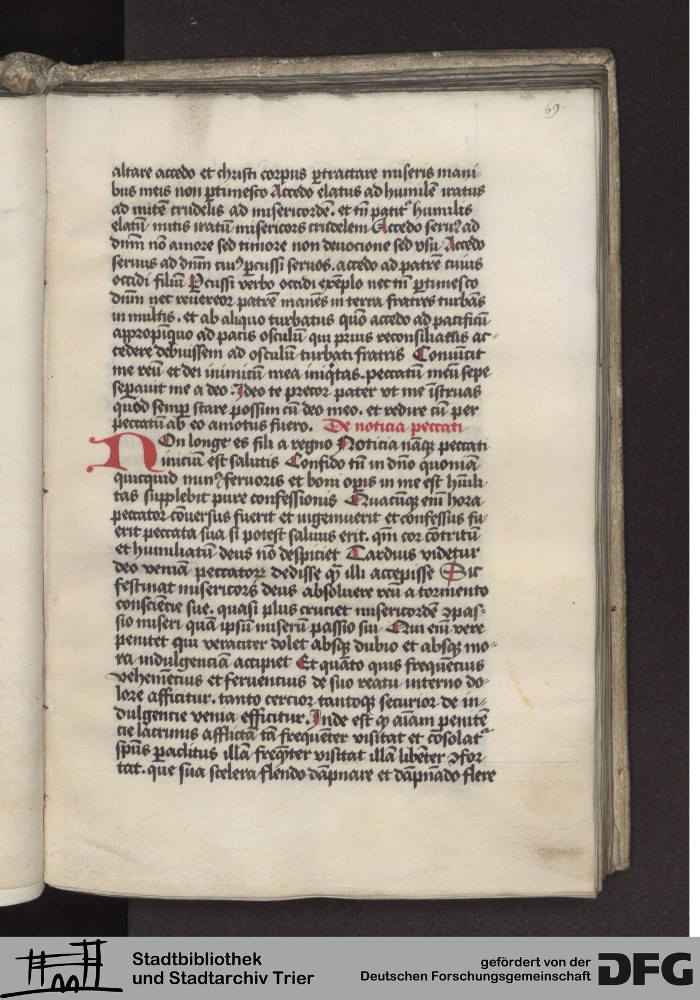 69.
altare accedo et christi corpus ꝑtractare miseris mani
bus meis non ꝑtimesco Accedo elatus ad humilē iratus
ad mitē crudelis ad misericordē. et tn̄ patit᷑ humilis
elatū mitis iratū misericors crudelem Accedo seruꝰ ad
dnm̄ nō amore sed timore non deuocione sed vsu Accedo
seruus ad dnm̄ cuiꝰ ꝑcussi seruos. accedo ad patrē cuius
occidi filiū Percussi verbo occidi exēplo nec tn̄ ꝑtimesco
dnm̄ nec reuereor patrē manēs in terra fratres turbās
in multis. et ab aliquo turbatus quō accedo ad pacificū
appropinquo ad pacis osculū qui prius reconsiliatus ac-
cedere debuissem ad osculū turbati fratris Conuincit
me reū et dei inimicū mea iniq̄tas. peccatū meū sepe
separauit me a deo. Ideo te precor pater vt me īstruas
quod semꝑ stare possim cū deo meo. et redire cū per
peccatū ab eo amotus fuero. De noticia peccati
Non longe es fili a regno Noticia nāq̄ peccati
inicium est salutis Confido tn̄ in dnō quoniā
quicquid minꝰ feruoris et boni oꝑis in me est hūili
tas supplebit pure confessionis Quacūq̄ enī hora
peccator cōuersus fuerit et ingemuerit et cōfessus fu-
erit peccata sua si potest saluus erit. qm̄ cor cōtritū
et humiliatū deus nō despiciet Tardius videtur
deo veniā peccatoꝝ dedisse qᷓ illi accepisse Sic
festinat misericors deus absoluere reū a tormento
consciēcie sue. quasi plus cruciet misericordē ꝯpas-
sio miseri quā ipsū miserū passio sui Qui enī vere
penitet qui veraciter dolet absqꝫ dubio et absqꝫ mo-
ra indulgenciā accipiet Et quāto quis frequēcius
vehemēcius et feruencius de suo reatu interno do-
lore afficitur. tanto cercior tantoqꝫ securior de in-
dulgencie venia efficitur. Inde est ꝙ aīam penitē
cie lacrimis afflictā tā frequēter visitat et cōsolat᷑
spūs paclitus illā freq̄nter visitat illā libēter ꝯfor
tat. que sua scelera flendo dāpnare et dāpnādo flere
Stadtbibliothek
und Stadtarchiv Trier
gefördert von der
Deutschen Forschungsgemeinschaft
DFG